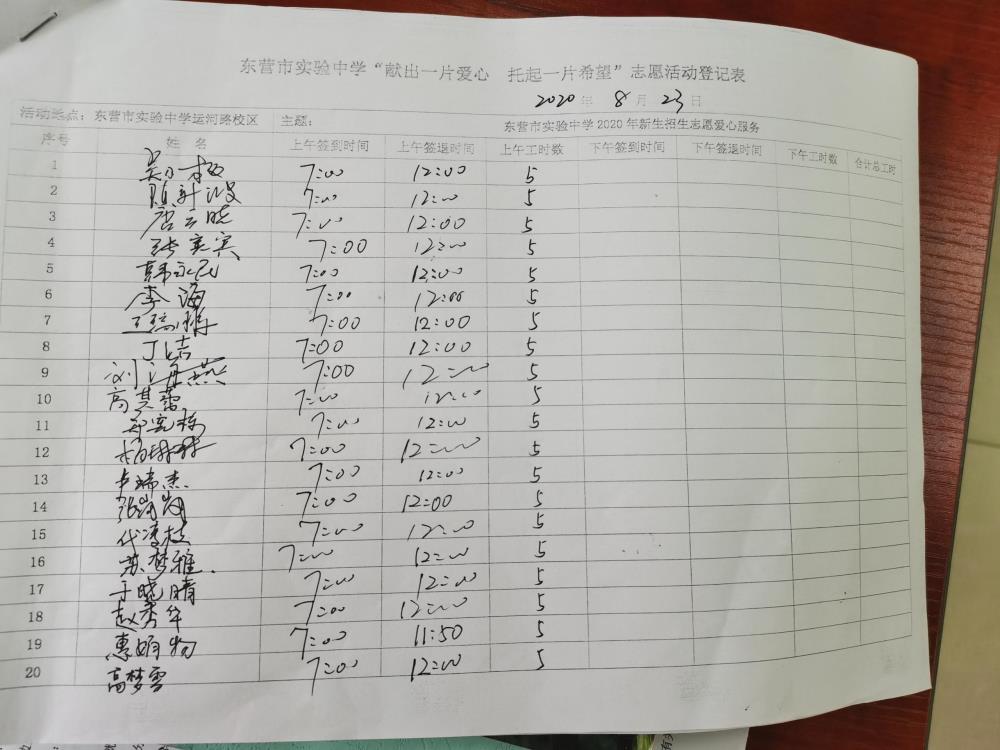 东营市实验中学“献出一片爱心 托起一片希望”志愿活动登记表
2020年 8月 23日
活动地点：东营市实验中学运河路校区 主题： 东营市实验中学2020年新生招生志愿爱心服务
序号 姓 名 上午签到时间 上午签退时间 上午工时数 下午签到时间 下午签退时间 下午工时数 合计总工时
1 7:00 12:00 5
2 7:00 12:00 5
3 唐云晓 7:00 12:00 5
4 7:00 12:00 5
5 韩永民 7:00 12:00 5
6 李海 7:00 12:00 5
7 7:00 12:00 5
8 丁洁 7:00 12:00 5
9 刘海燕 7:00 12:00 5
10 高其蕾 7:00 12:00 5
11 7:00 12:00 5
12 7:00 12:00 5
13 卢瑞杰 7:00 12:00 5
14 7:00 12:00 5
15 7:00 12:00 5
16 苏梦雅 7:00 12:00 5
17 于晓晴 7:00 12:00 5
18 赵秀华 7:00 12:00 5
19 7:00 11:50 5
20 高梦雪 7:00 12:00 5